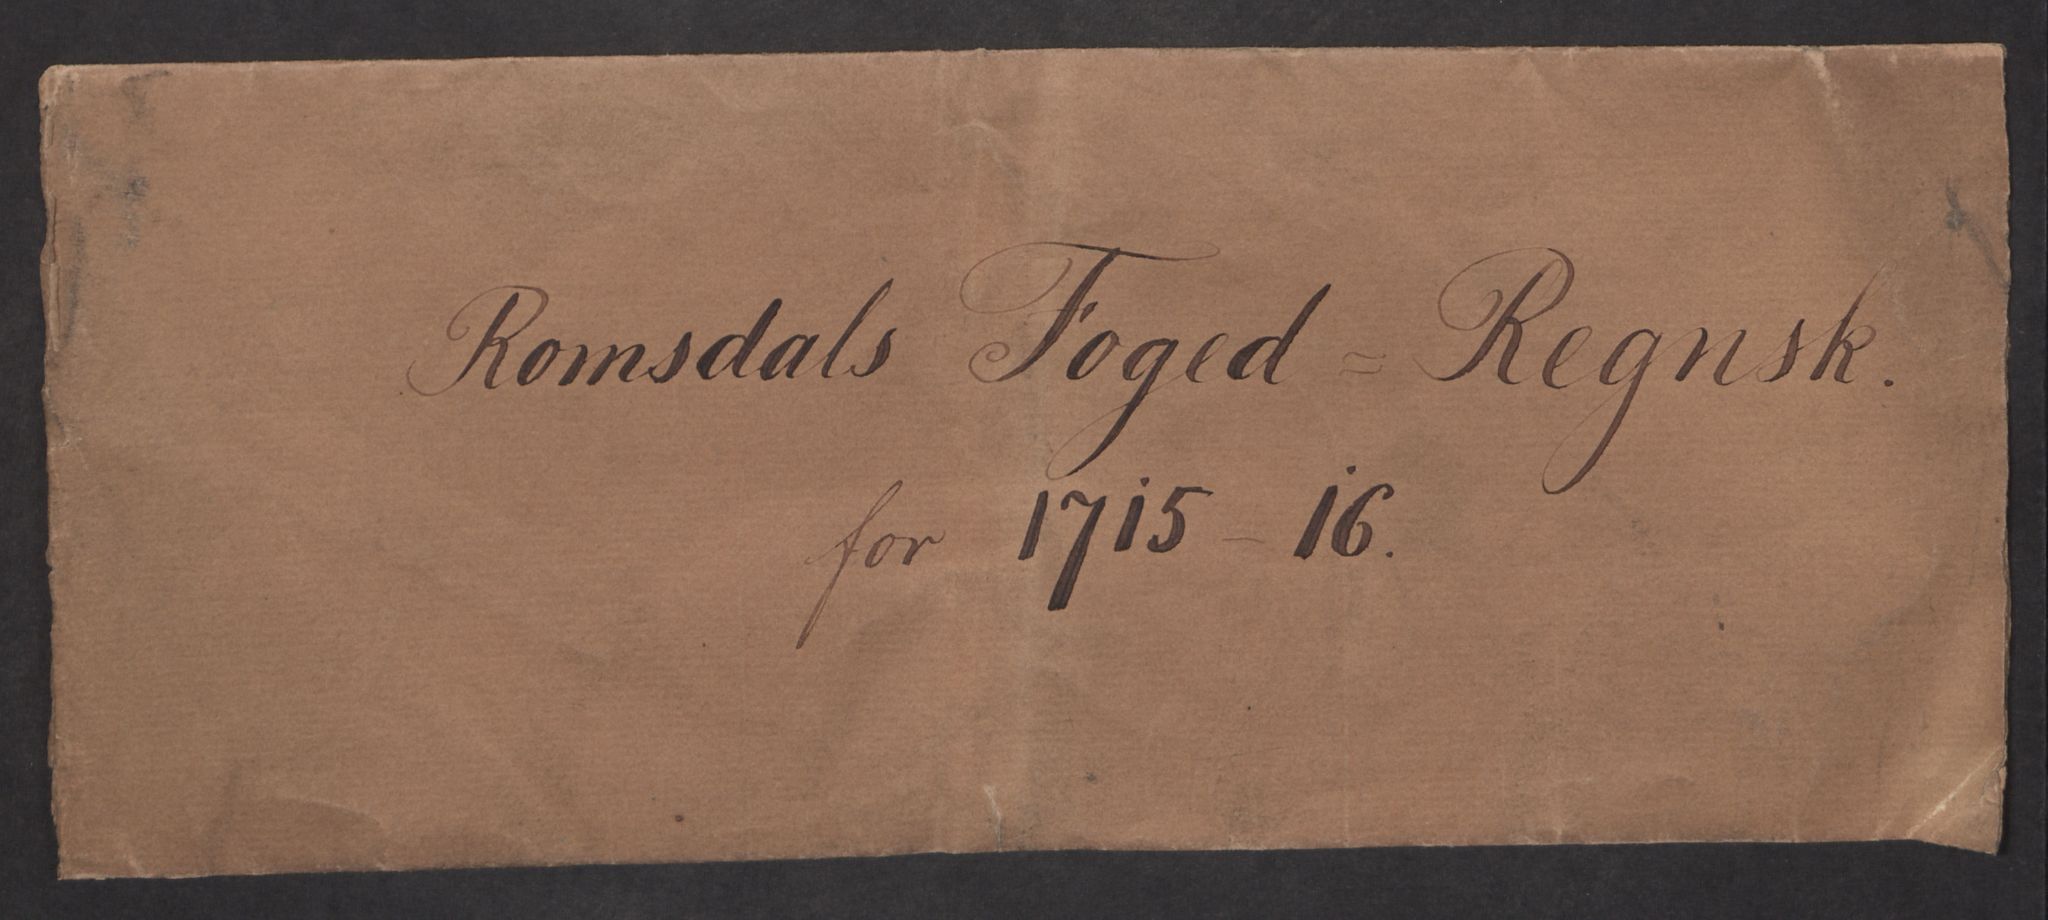 Romsdals Foged = Regnsk.
for 1715 - 16.